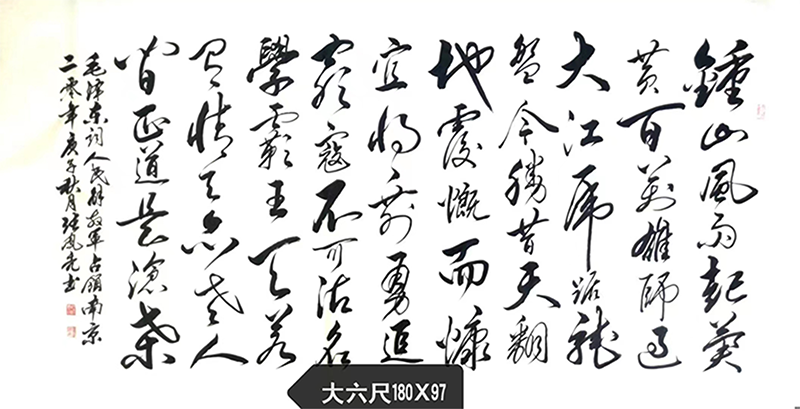 鍾山風雨起蒼
黄百萬雄師過
大江虎踞龍
盤今勝昔天翻
地覆慨而慷
宜将剩勇追
窮寇不可沽名
學霸王天若
有情天亦老人
間正道是滄桑
毛泽东词人民解放軍占領南京
二零年庚子秋月
大六尺180X97